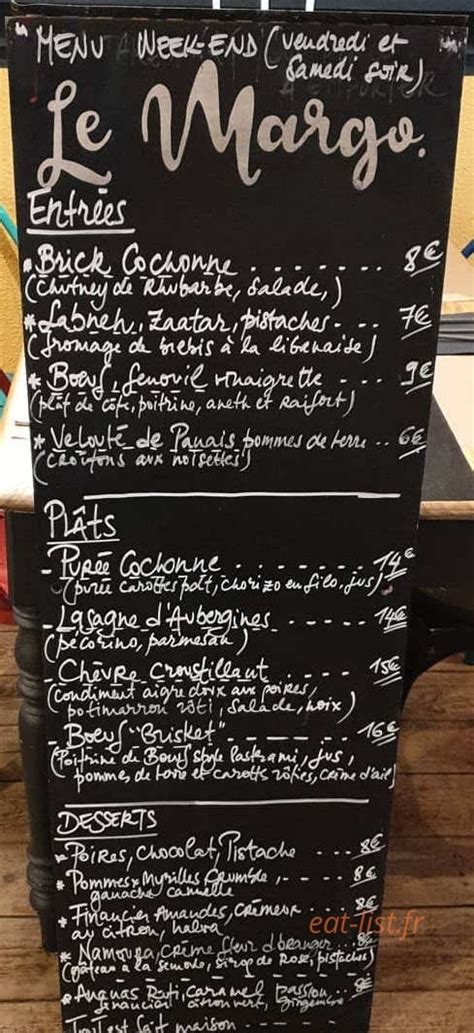 MENU WEEK-END (vendredi et
samedi soir)
Le Margo.
Entrées
* Brick Cochonne ....... 8€
(Chutney de Rhubarbe, salade,)
* Labneh, Zaatar, pistaches... 7€
(fromage de brebis à la libanaise)
* Boeuf, Fenouil vinaigrette ... 9€
(plat de côte, poitrine, aneth et Raifort)
* Velouté de Panais pommes de terre .. 6€
(croûtons aux noisettes)
Plâts
- Purée Cochonne ....... 14€
(purée carottes, chorizo en filo, jus)
- Lasagne d'Aubergines ..... 14€
(pécorino, parmesan)
- Chèvre Croustillant ..... 15€
(condiment aigre doix aux poires,
potimarron rôti, salade, noix)
- Boeuf "Brisket" ------ 16€
(Poitrine de Boeuf style Pastrami, jus,
pommes de terre et carotts rôties, crème d'ail)
DESSERTS
* Poires, Chocolat, Pistache ... 8€
* Pommes Myrtilles Crumble, --- 8€
ganache cannelle
* Financier Amandes, Crémeux ... 8€
au citron, halva
* Namoura, Crème fleur d'oranger ... 8€
(gâteau à la semoule, sirop de Rose, pistaches)
* Ananas Roti, Caramel passion ... 8€
financier citron vert, gingembre
Tout est fait maison
eat-list.fr